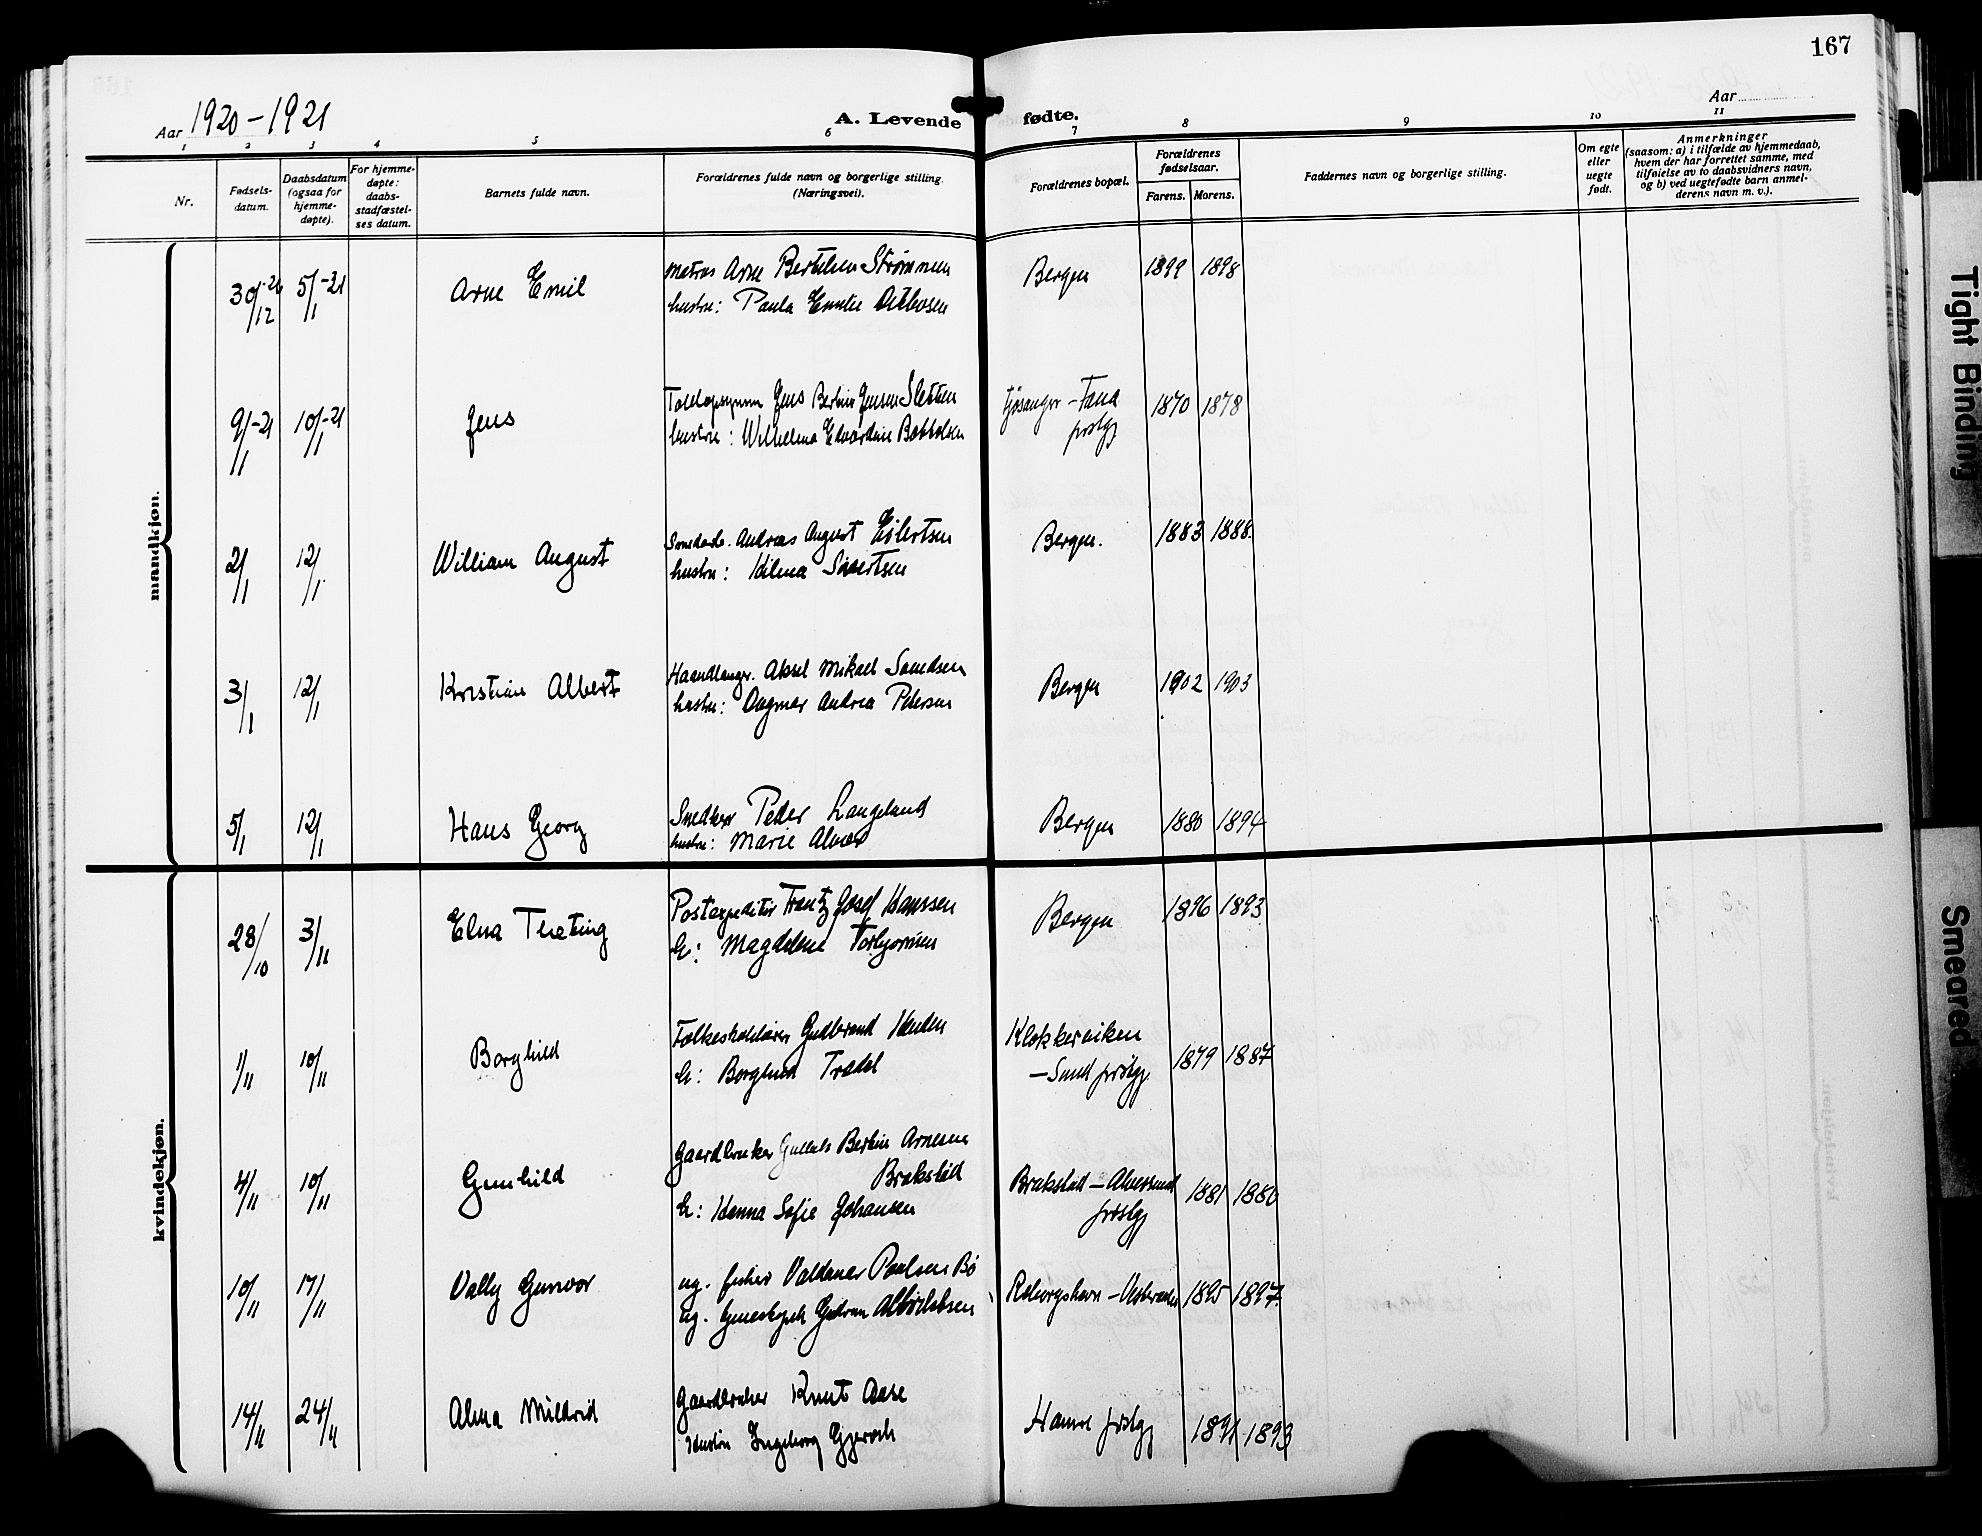 167
Aar 1920-1921
A. Levende fødte.
Aar
1 2 3 4 5 6 7 8 9 10 11
Nr.
Fødsels-
datum.
Daabsdatum
(ogsaa for
hjemme-
døpte).
For hjemme-
døpte:
daabs-
stadfæstel-
ses datum.
Barnets fulde navn.
Forældrenes fulde navn og borgerlige stilling.
(Næringsvei).
Forældrenes bopæl.
Forældrenes
fødselsaar.
Farens. Morens.
Faddernes navn og borgerlige stilling.
Om egte
eller
uegte
født.
Anmerkninger
(saasom: a) i tilfælde av hjemmedaab,
hvem der har forrettet samme, med
tilføielse av to daabsvidners navn,
og b) ved uegtefødte barn anmel-
derens navn m. v.).
mandkjøn.
30/12-20 5/1-21 Arne Emil
Matros Arne Bertelsen Strømmen
hustru: Paula
Bergen 1899 1898
9/1-21 10/1-21 Jens
Jens Bertin Jensen Sletten
hustru: Wilhelmine Edvardine
Fjøsanger - Fana
prstgj
1870 1878
2/1 12/1 William August
Andreas August Eilertsen
hustru: Hilma Sivertsen
Bergen. 1883 1888.
3/1 12/1 Kristian Albert
Haandlanger. Aksel Mikael Samdsen
hustru: Dagmar Andrea Petersen
Bergen 1902 1903
5/1 12/1 Hans Georg
Snedker Peder Langeland
hustru: Marie
Bergen 1880 1894
kvindekjøn.
28/10 3/11 Elna
Postexpeditør Frantz Josef Hanssen
h: Magdelene
Bergen 1896 1893
1/11 10/11 Borghild
Gudbrand
h: Borghild
Klokkerviken
- Sund prstgj.
1879 1887
4/11 10/11 Gunhild
Gaardbruker Bertin Arnesen
Brakstad
h: Hanna Sofie Johansen
Brakstad - Alversund
prstgj
1881 1880
10/11 17/11 Vally Gunvor
ug. fisker Valdemar Paulsen Bø
ug. Gudrun
1895 1897.
14/11 24/11 Alma Mildrid
Gaardbruker Knut Aase
Hustru Ingeborg
Hamre prstgj 1891 1893
Tight Binding
Smeared